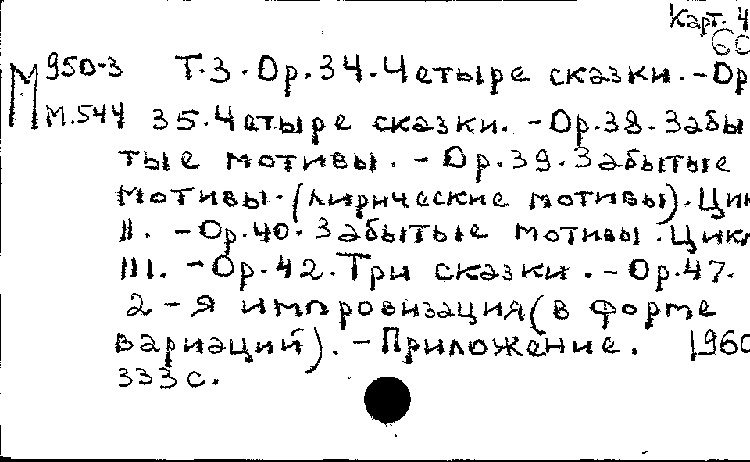 Карт. 4
60
М 950-3 Т.3. Op.34. Четыре сказки. - Op
М.544 35. Четыре сказки. - Op.38. Забы
тые мотивы. - Op.39. Забытые
мотивы. (лирические мотивы). Цик
II. - Op.40. Забытые мотивы. Цикл
III. - Op.42. Три сказки. - Op.47.
2-я импровизация (в форме
вариаций). - Приложение. 1960
333 с.